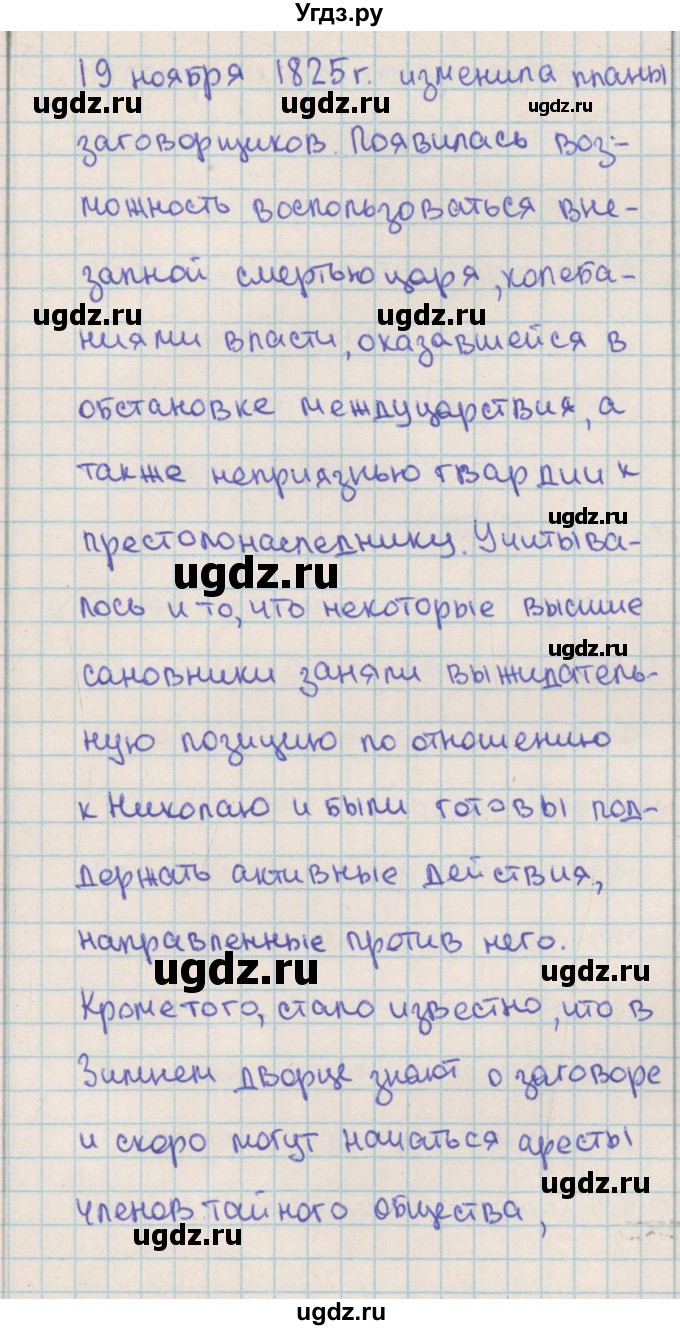 Угдз.ру
19 ноября 1825г. изменила планы
ugdz.ru ugdz.ru ugdz.ru
заговорщиков. Появилась воз-
можность воспользоваться вне-
запной смертью царя, колеба-
ugdz.ru ugdz.ru
ниями власти, оказавшейся в
обстановке междуцарствия, а
также неприязнью гвардии к
ugdz.ru
престолонаследнику. Учитыва-
ugdz.ru
лось и то, что некоторые высшие
ugdz.ru
сановники заняли выжидатель-
ную позицию по отношению
к Николаю и были готовы под-
держать активные действия,
направленные против него.
ugdz.ru ugdz.ru
Кроме того, стало известно, что в
Зимнем дворце знают о заговоре
и скоро могут начаться аресты
ugdz.ru
членов тайного общества,
ugdz.ru
ugdz.ru